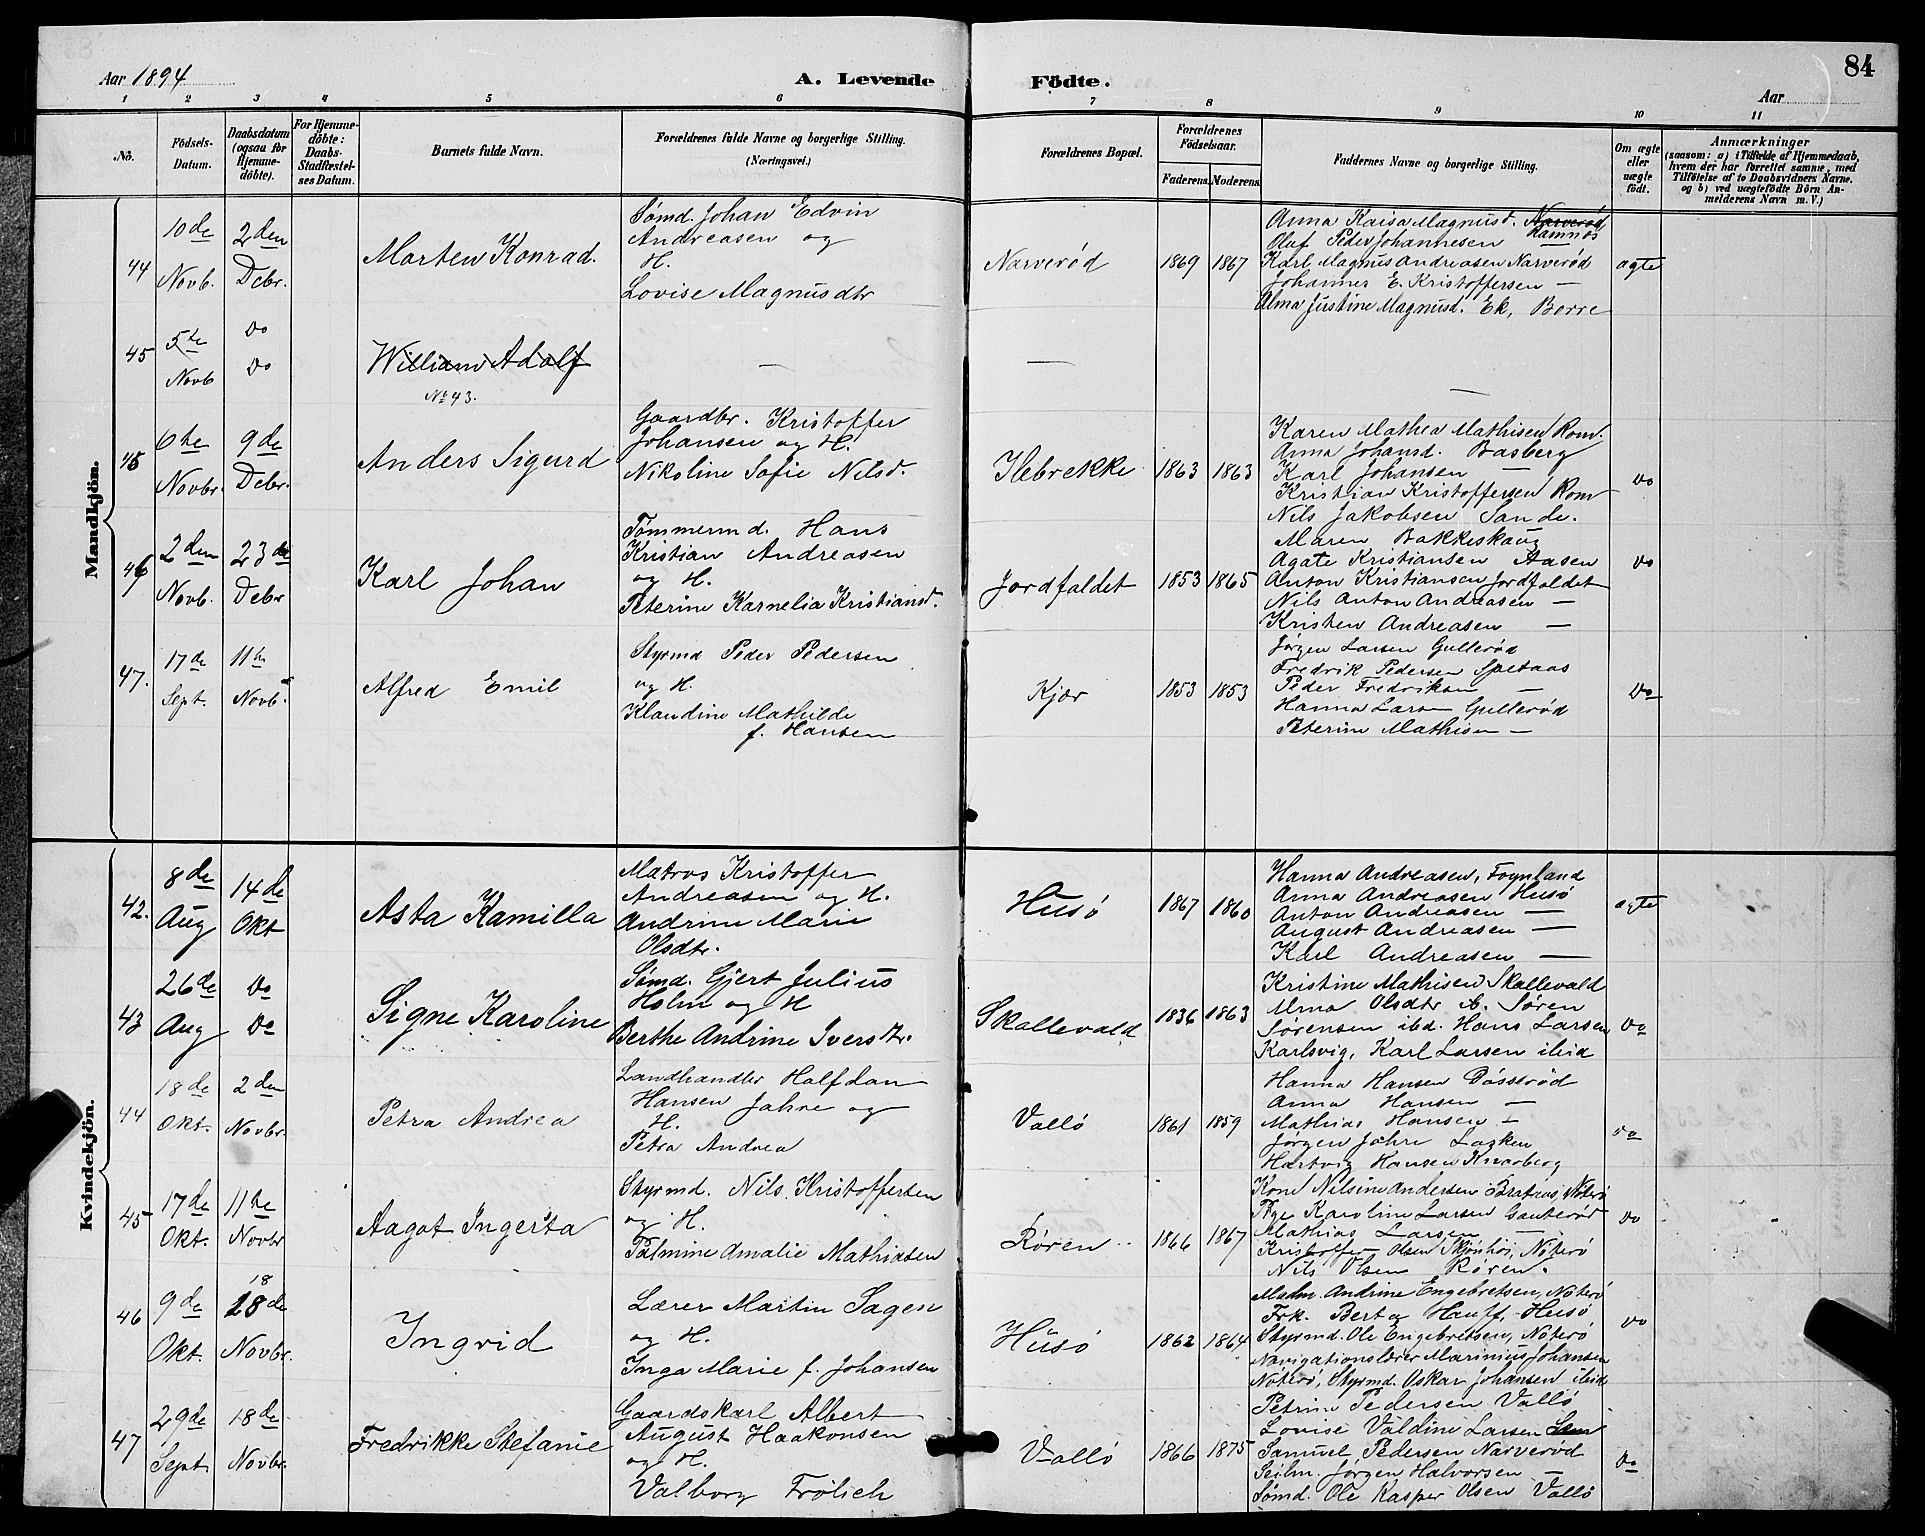 84
Aar 1894
A. Levende Födte.
Aar
1 2 3 4 5 6 7 8 9 10 11
No.
Födsels-
Datum.
Daabsdatum
(ogsaa for
Hjemme-
döbte).
For Hjemme-
döbte:
Daabs-
Stadfæstel-
ses Datum.
Barnets fulde Navn.
Forældrenes fulde Navne og borgerlige Stilling.
(Næringsvei.)
Forældrenes Bopæl.
Forældrenes
Födselsaar.
Faderens. Moderens.
Faddernes Navne og borgerlige Stilling.
Om ægte
eller
uægte
födt.
Anmærkninger
(saasom: a) i Tilfælde af Hjemmedaab,
hvem der har forrettet samme, med
Tilföielse af to Daabsvidners Navne.
og b) ved uægtefödte Börn An-
melderens Navn m. V.)
Mandkjön.
44
10de
Novb.
2den
Debr.
Morten Konrad.
Sømd. Johan Edvin
Andreasen og
H.
Lovise Magnusdtr
Narverød
1869 1867
Anna Kaisa Magnusd. Narverød
Ramnæs
Oluf Peder Johannesen —
Karl Magnus Andreasen Narverød
Johannes E. Kristoffersen —
Alma Justine Magnusd. Ek, Borre
ægte
45
5te
Novb
do
do
William Adolf
No 43.
—
—
—
45
6te
Novbr.
9de
Debr.
Anders Sigurd
Gaardbr. Kristoffer
Johansen og H.
Nikoline Sofie Nilsd.
Ilebrekke
1863 1863
Karen Mathea Mathisen Rom.
Anna Johansd. Basberg
Karl Johansen —
Kristian Kristoffersen Rom
Nils Jakobsen Sande.
do
46
2den
Novb.
23de
Debr
Karl Johan
Tømmermd. Hans
Kristian Andreasen
og H.
Peterine Karnelia Kristiansd.
Jordfaldet
1853 1865
Maren Bakkeskaug
Agate Kristiansen Aasen
Anton Kristiansen Jordfaldet
Nils Anton Andreasen —
Kristen Andreasen —
do
47.
17de
Sept.
11te
Novb.
Alfred Emil
Styrmd Peder Pedersen
og H.
Klaudine Mathilde
f. Hansen
Kjær
1853 1853
Jørgen Larsen Gullerød
Fredrik Pedersen Spetaas
Peder Fredriksen —
Hanna Larsen Gullerød
Peterine Mathisen —
do
Kvindekjön.
42.
8de
Aug
14de
Okt
Asta Kamilla
Matros Kristoffer
Andreasen og H.
Andrine Marie
Olsdtr.
Husö
1867 1860
Hanna Andreasen, Foynland
Anna Andreasen Husö
Anton Andreasen —
August Andreasen —
Karl Andreasen —
ægte
43
26de
Aug
do
do
Signe Karoline
Sømd. Gjert Julius
Holm og H
Berthe Andrine Iversdtr.
Skallevald
1836 1863
Kristine Mathisen Skallevald
Alma Olsdtr ib. Sören
Sørensen ibd. Hans Larsen
Karlsvig, Karl Larsen ibid
do
44
18de
Okt.
2den
Novbr.
Petra Andrea
Landhandler Halfdan
Hansen Jahre og
H.
Petra Andrea
Vallö
1861 1859
Hanna Hansen Døssrød
Anna Hansen —
Mathias Hansen —
Jørgen Jahre Lasken
Hartvig Hansen Knarberg
do
45
17de
Okt.
11te
Novbr
Aagot Ingerta
Styrmd. Nils Kristoffersen
og H.
Palmine Amalie Mathiasen
Røren
1866 1867
Kone Nilsine Andersen Brataas, Nöterö
Pige Karoline Larsen Gauterød
Mathias Larsen —
Kristoffer Olsen Nöterö
Nils Olsen Røren.
do
46
9de
Okt.
18
18de
Novbr.
Ingrid
Lærer Martin Sagen
og H.
Inga Marie f. Johansen
Husö
1862 1864
Madm. Andrine Engebretsen, Nöterö
Frk. Berta Hauff, Husö
Styrmd. Ole Engebretsen, Nöterö
Navigationslærer Marinius Johansen
Nöterö, Styrmd. Oskar Johansen ibid
do
47
29de
Sept
18de
Novbr.
Fredrikke Stefanie
Gaardskarl Albert
August Haakonsen
og H.
Valborg Frölich
Vallö
1866 1875
Petrine Pedersen Vallö
Lovise Valdine Larsen
Samuel Pedersen Narverød
Seilm. Jørgen Halvorsen —
Sømd. Ole Kasper Olsen Vallö
do